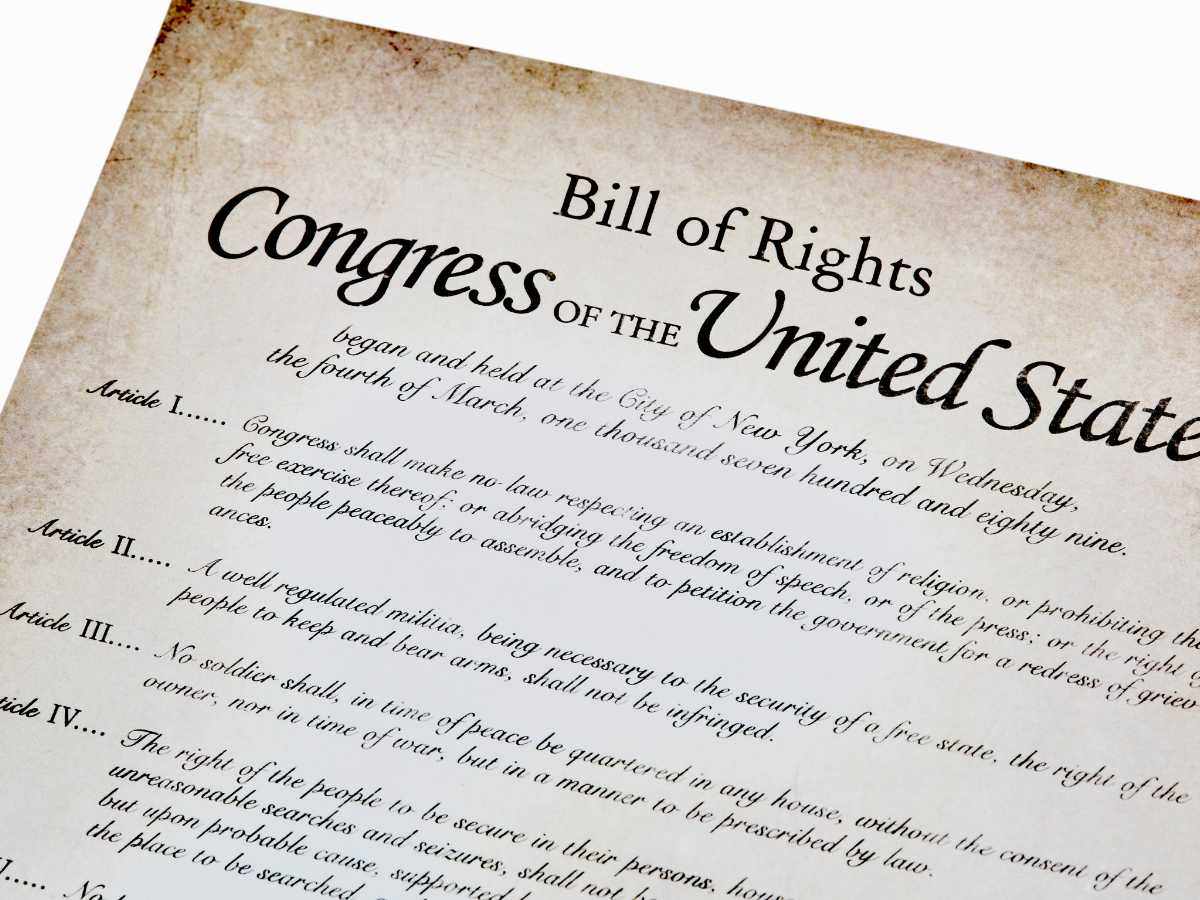 Bill of Rights
Congress OF THE United State
began and held at the City of New York, on Wednesday,
the fourth of March, one thousand seven hundred and eighty nine.
Article I...... Congress shall make no law respecting an establishment of religion, or prohibiting the
free exercise thereof; or abridging the freedom of speech, or of the press; or the right of
the people peaceably to assemble, and to petition the government for a redress of griev
ances.
Article II..... A well regulated militia, being necessary to the security of a free state, the right of the
people to keep and bear arms, shall not be infringed.
Article III.... No soldier shall, in time of peace be quartered in any house, without the consent of the
owner, nor in time of war, but in a manner to be prescribed by law.
ticle IV.... The right of the people to be secure in their persons, hous
unreasonable searches and seizures, shall not be
but upon probable cause, supported
the place to be searched,
No